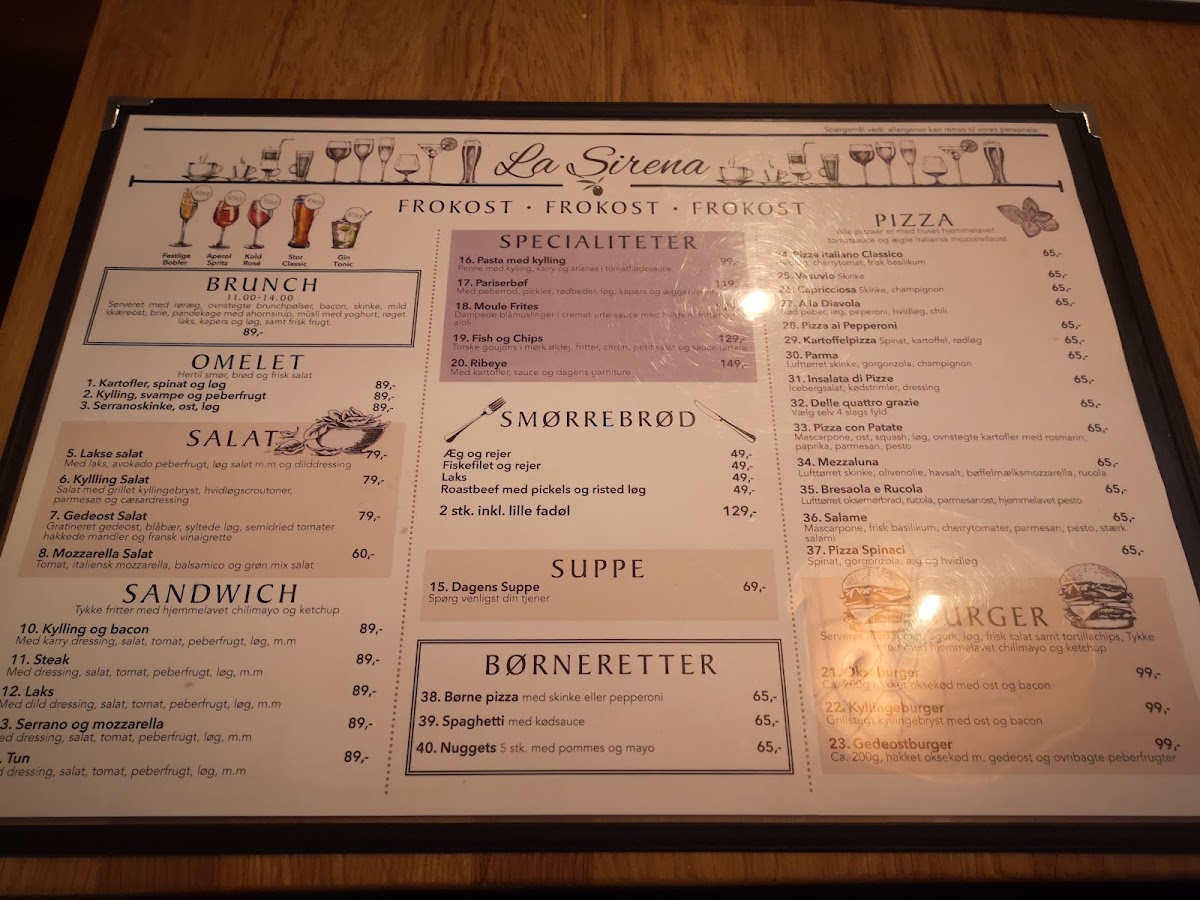 Spørgsmål vedr. allergener kan rettes til vores personale
La Sirena
FROKOST · FROKOST · FROKOST
Festlige Bobler
Aperol Spritz
Kold Rosé
Stor Classic
Gin Tonic
BRUNCH
11.00-14.00
Serveret med røræg, ovnstegte brunchpølser, bacon, skinke, mild
skæreost, brie, pandekage med ahornsirup, müsli med yoghurt, røget
laks, kapers og løg, samt frisk frugt.
89,-
OMELET
Hertil smør, brød og frisk salat
1. Kartofler, spinat og løg 89,-
2. Kylling, svampe og peberfrugt 89,-
3. Serranoskinke, ost, løg 89,-
SALAT
5. Lakse salat 79,-
Med laks, avokado peberfrugt, løg salat m.m og dilddressing
6. Kyllling Salat 79,-
Salat med grillet kyllingebryst, hvidløgscroutoner,
parmesan og cæsardressing
7. Gedeost Salat 79,-
Gratineret gedeost, blåbær, syltede løg, semidried tomater
hakkede mandler og fransk vinaigrette
8. Mozzarella Salat 60,-
Tomat, italiensk mozzarella, balsamico og grøn mix salat
SANDWICH
Tykke fritter med hjemmelavet chilimayo og ketchup
10. Kylling og bacon 89,-
Med karry dressing, salat, tomat, peberfrugt, løg, m.m
11. Steak 89,-
Med dressing, salat, tomat, peberfrugt, løg, m.m
12. Laks 89,-
Med dild dressing, salat, tomat, peberfrugt, løg, m.m
3. Serrano og mozzarella 89,-
ed dressing, salat, tomat, peberfrugt, løg, m.m
. Tun 89,-
d dressing, salat, tomat, peberfrugt, løg, m.m
SPECIALITETER
16. Pasta med kylling 99,-
Penne med kylling, karry og ananas i tomatflødesauce
17. Pariserbøf 119,-
Med peberrod, pickles, rødbedet, løg, kapers og æggeblomme
18. Moule Frites
Dampede blåmuslinger i cremet urte-sauce med hvidvin, fritter og
aioli
19. Fish og Chips 129,-
Torske goujons i mørk øldej, fritter, citron, petit salat og sauce tartare
20. Ribeye 149,-
Med kartofler, sauce og dagens garniture
SMØRREBRØD
Æg og rejer 49,-
Fiskefilet og rejer 49,-
Laks 49,-
Roastbeef med pickels og risted løg 49,-
2 stk. inkl. lille fadøl 129,-
SUPPE
15. Dagens Suppe 69,-
Spørg venligst din tjener
BØRNERETTER
38. Børne pizza med skinke eller pepperoni 65,-
39. Spaghetti med kødsauce 65,-
40. Nuggets 5 stk. med pommes og mayo 65,-
PIZZA
Alle pizzaer er med huset hjemmeløvet
tomatsauce og ægte italiensk mozzarellaost
24. Pizza italiano Classico 65,-
cherrytomat, frisk basilikum
25. Vesuvio Skinke 65,-
26. Capricciosa Skinke, champignon 65,-
27. A la Diavola 65,-
Rød peber, løg, peperoni, hvidløg, chili
28. Pizza ai Pepperoni 65,-
29. Kartoffelpizza Spinat, kartoffel, rødløg 65,-
30. Parma 65,-
Lufttørret skinke, gorgonzola, champignon
31. Insalata di Pizze 65,-
Icebergsalat, kødstrimler, dressing
32. Delle quattro grazie 65,-
Vælg selv 4 slags fyld
33. Pizza con Patate 65,-
Mascarpone, ost, squash, løg, ovnstegte kartofler med rosmarin,
paprika, parmesan, pesto
34. Mezzaluna 65,-
Lufttørret skinke, olivenolie, havsalt, bøffelmælksmozzarella, rucola
35. Bresaola e Rucola 65,-
Lufttørret oksemørbrad, rucola, parmesanost, hjemmelavet pesto
36. Salame 65,-
Mascarpone, frisk basilikum, cherrytomater, parmesan, pesto, stærk
salami
37. Pizza Spinaci 65,-
Spinat, gorgonzola, æg og hvidløg
BURGER
Serveres agurk, løg, frisk salat samt tortillachips, Tykke
hjemmelavet chilimayo og ketchup
21. Okseburger 99,-
Ca. 200g hakket oksekød med ost og bacon
22. Kyllingeburger 99,-
Grillstegt kyllingebryst med ost og bacon
23. Gedeostburger 99,-
Ca. 200g, hakket oksekød m. gedeost og ovnbagte peberfrugter